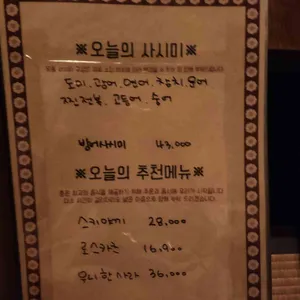 ※오늘의 사시미※
도미. 광어. 연어. 참치. 문어
찐전복. 고등어. 숭어
방어사시미 43,000
※오늘의 추천메뉴※
스키야끼 28,000
로스카츠 16,900
우니한사라 36,000